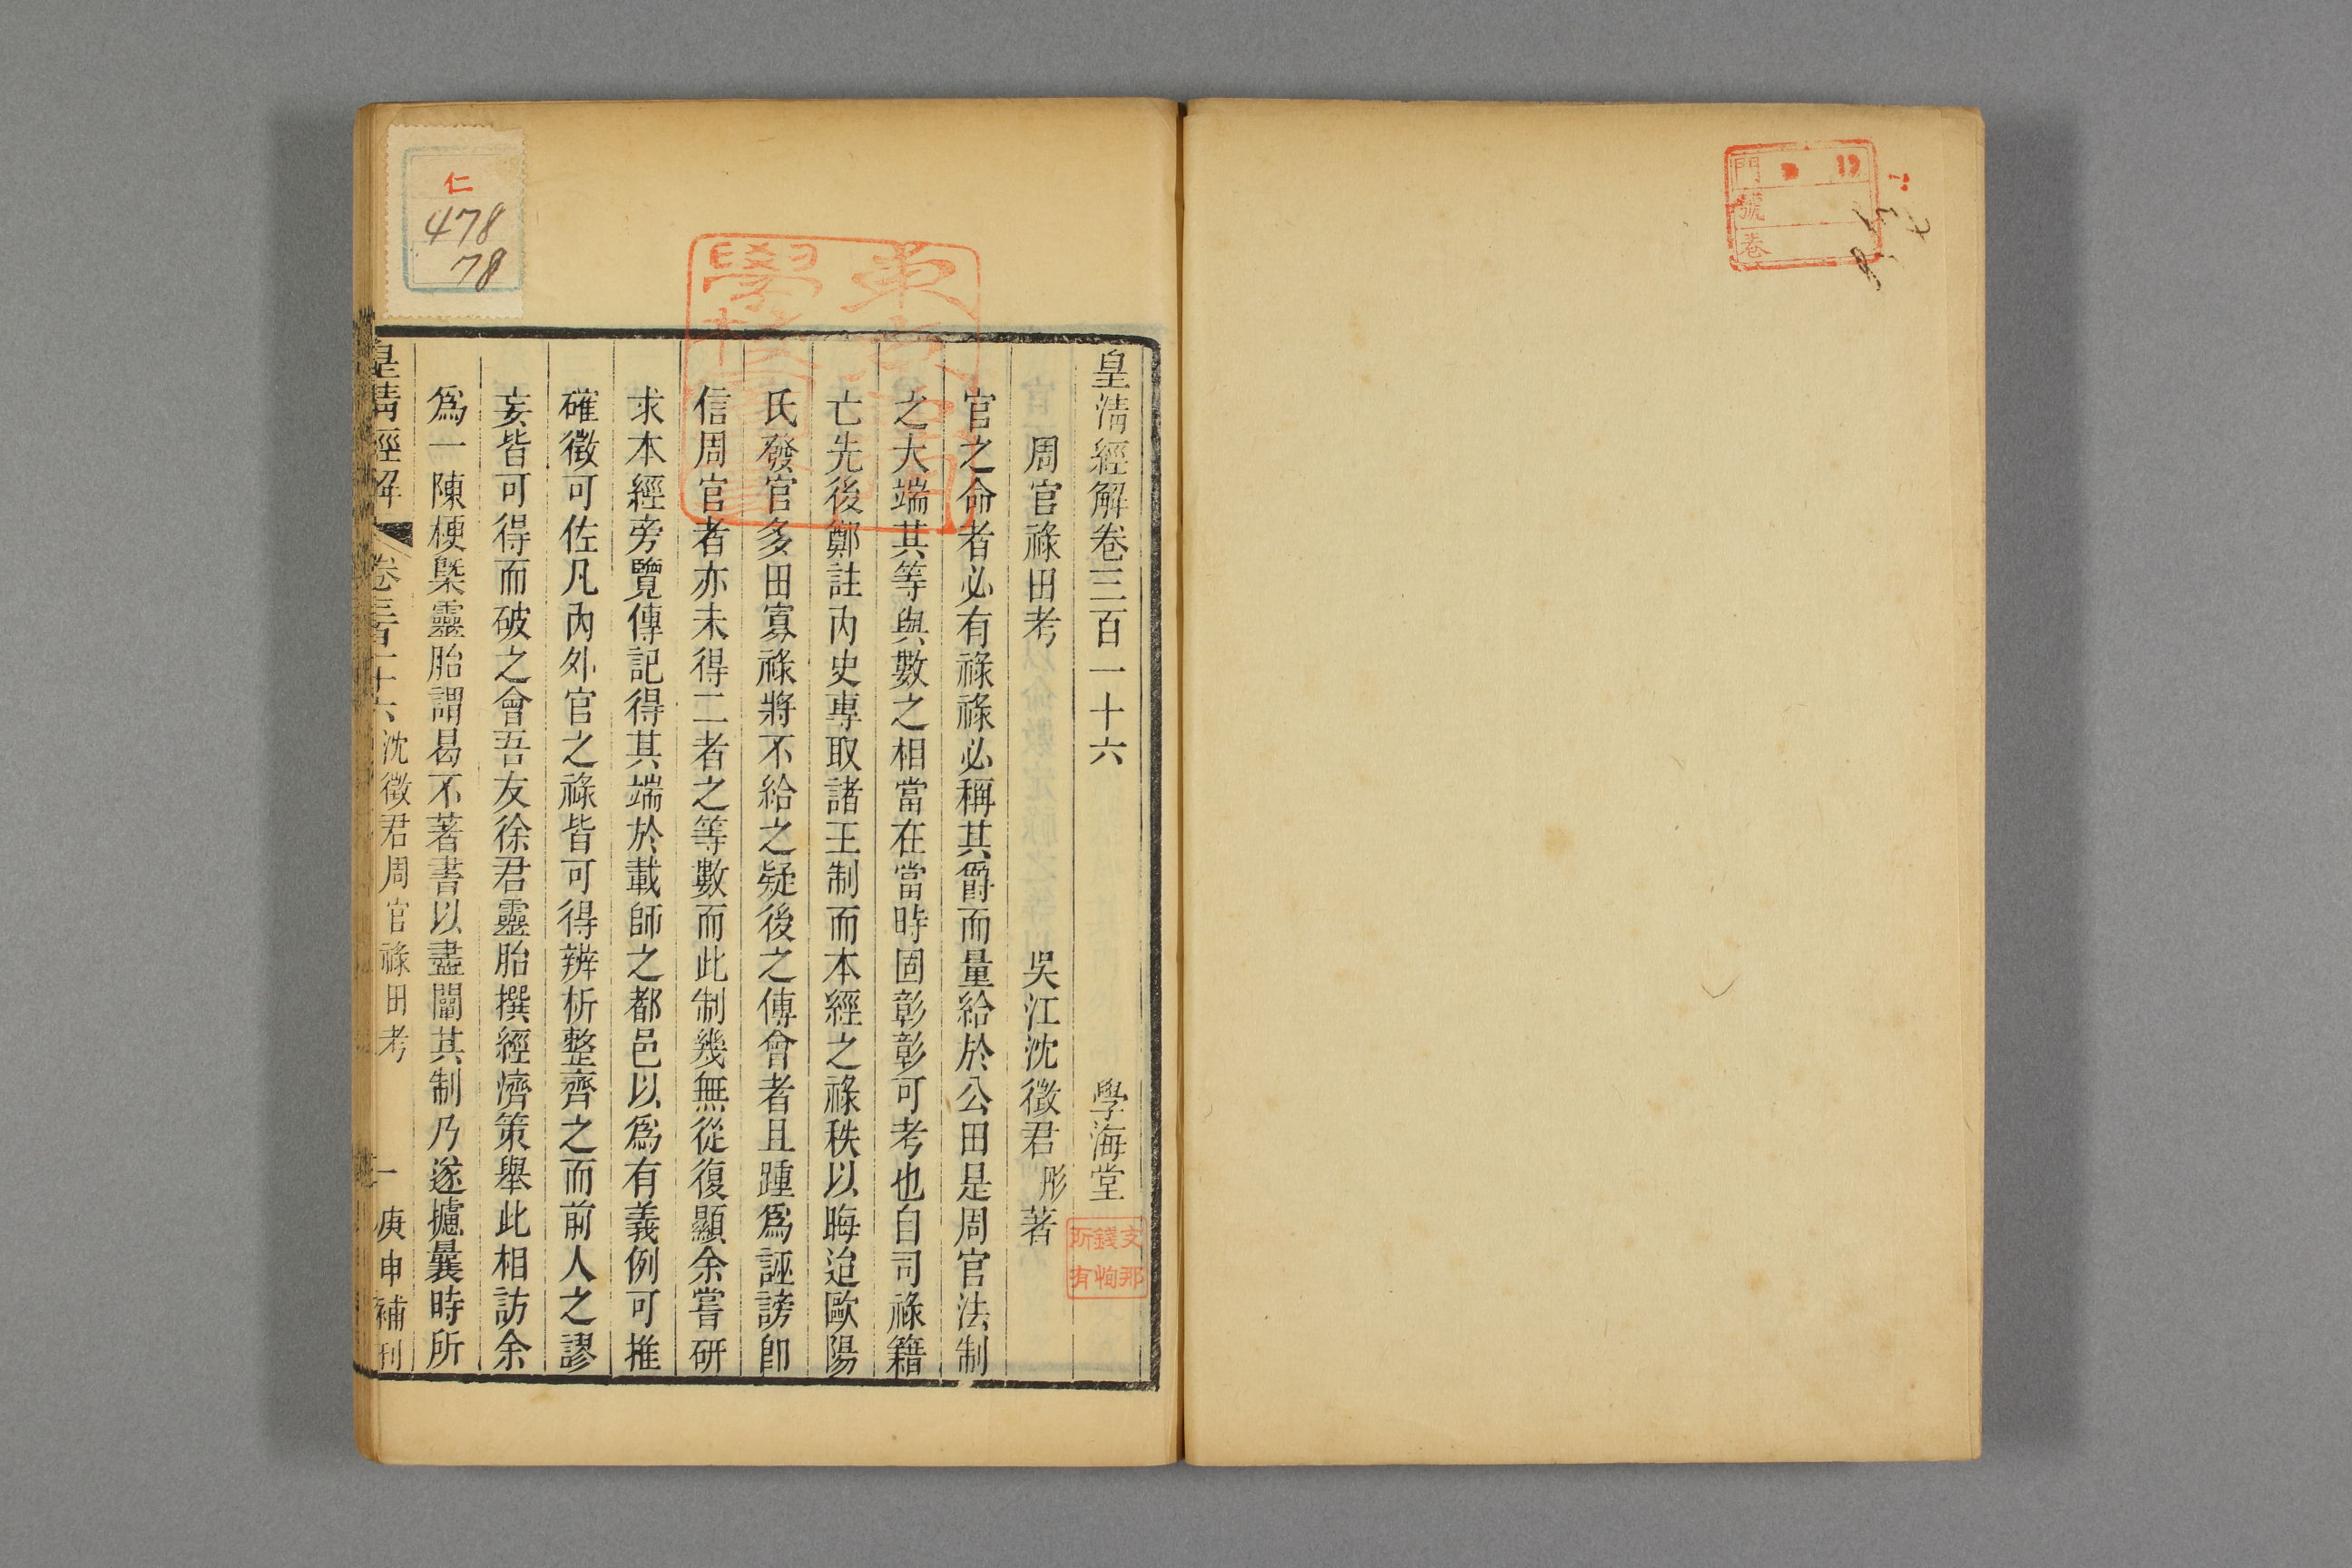 門
號
卷
皇清經解卷三百一十六 學海堂
周官祿田考 吳江沈徵君彤著
官之命者必有祿祿必稱其爵而量給於公田是周官法制
之大端其等與數之相當在當時固彰彰可考也自司祿籍
亡先後鄭註內史專取諸王制而本經之祿秩以晦迨歐陽
氏發官多田寡祿將不給之疑後之傅會者且踵爲誣謗卽
信周官者亦未得二者之等數而此制幾無從復顯余嘗研
求本經旁覽傳記得其端於載師之都邑以爲有義例可推
確徵可佐凡內外官之祿皆可得辨析整齊之而前人之謬
妄皆可得而破之會吾友徐君靈胎撰經濟策舉此相訪余
爲一陳梗槩靈胎謂曷不著書以盡闡其制乃遂攄曩時所
皇清經解 卷三百一十六 沈徵君周官祿田考 一 庚申補刊
仁
478
78
支那
錢恂
所有